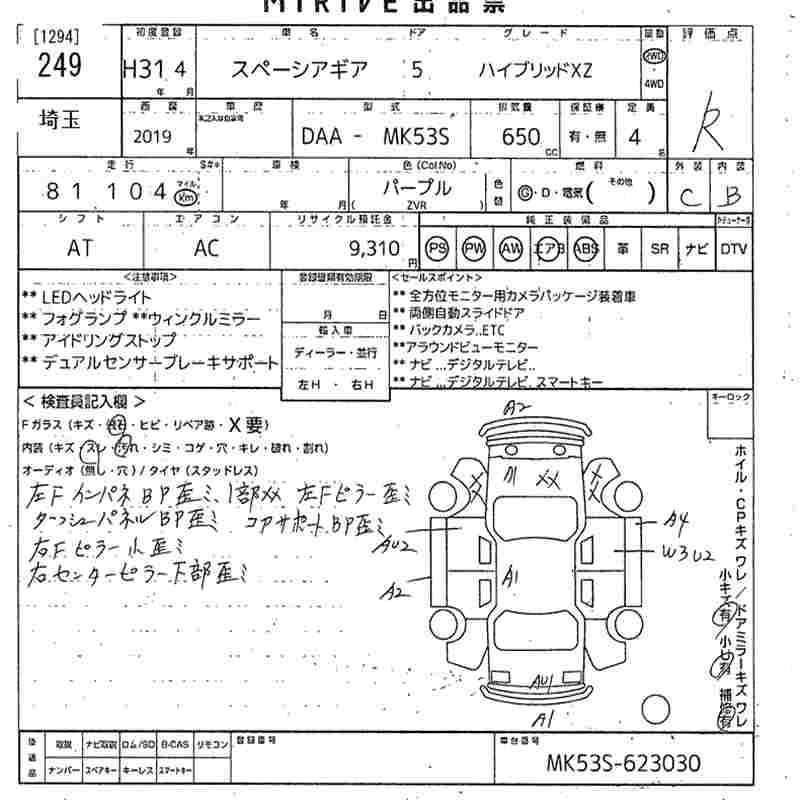 MIRIVE 出品票
[1294]
249
初度登録 車名 ドア グレード 駆動 評価点
H31 4 スペーシアギア 5 ハイブリッドXZ 2WD
年 月 4WD
R
埼玉
西暦 車歴 型式 排気量 保証書 定員
2019 年 DAA - MK53S 650 CC 有・無 4 名
走行 S#* 車検 色(Col.No) 燃料 外装 内装
81 104 マイル km 年 月 パープル (ZVR) 色替 G・D・電気( その他 ) C B
シフト エアコン リサイクル預託金 純正装備品
AT AC 9,310 円 PS PW AW エアB ABS 革 SR ナビ DTV
<注意事項> 登録書類有効期限 <セールスポイント>
** LEDヘッドライト
** フォグランプ **ウィングルミラー
** アイドリングストップ
** デュアルセンサーブレーキサポート
月 日
輸入車
ディーラー・並行
左H ・ 右H
** 全方位モニター用カメラパッケージ装着車
** 両側自動スライドドア
** バックカメラ..ETC
**アラウンドビューモニター
** ナビ...デジタルテレビ..
** ナビ...デジタルテレビ.スマートキー
<検査員記入欄>
キーロック
Fガラス(キズ・飛石・ヒビ・リペア跡・X要)
内装(キズ・スレ・汚れ・シミ・コゲ・穴・キレ・破れ・割れ)
オーディオ(無し・穴)/タイヤ(スタッドレス)
左FインパネBP歪ミ、1部XX 左Fピラー歪ミ
ダッシュパネルBP歪ミ コアサポートBP歪ミ
右Fピラー小歪ミ
右センターピラー下部歪ミ
A2
XX
XX
XX
AU2
A2
A1
A4
W3U2
AU1
A1
ホイル・CPキズワレ/ドアミラーキズワレ
小キズ有/小凹有 補修有
後送品 取説 ナビ取説 ロム/SD B-CAS リモコン 登録番号 車台番号
ナンバー スペアキー キーレス スマートキー
MK53S-623030